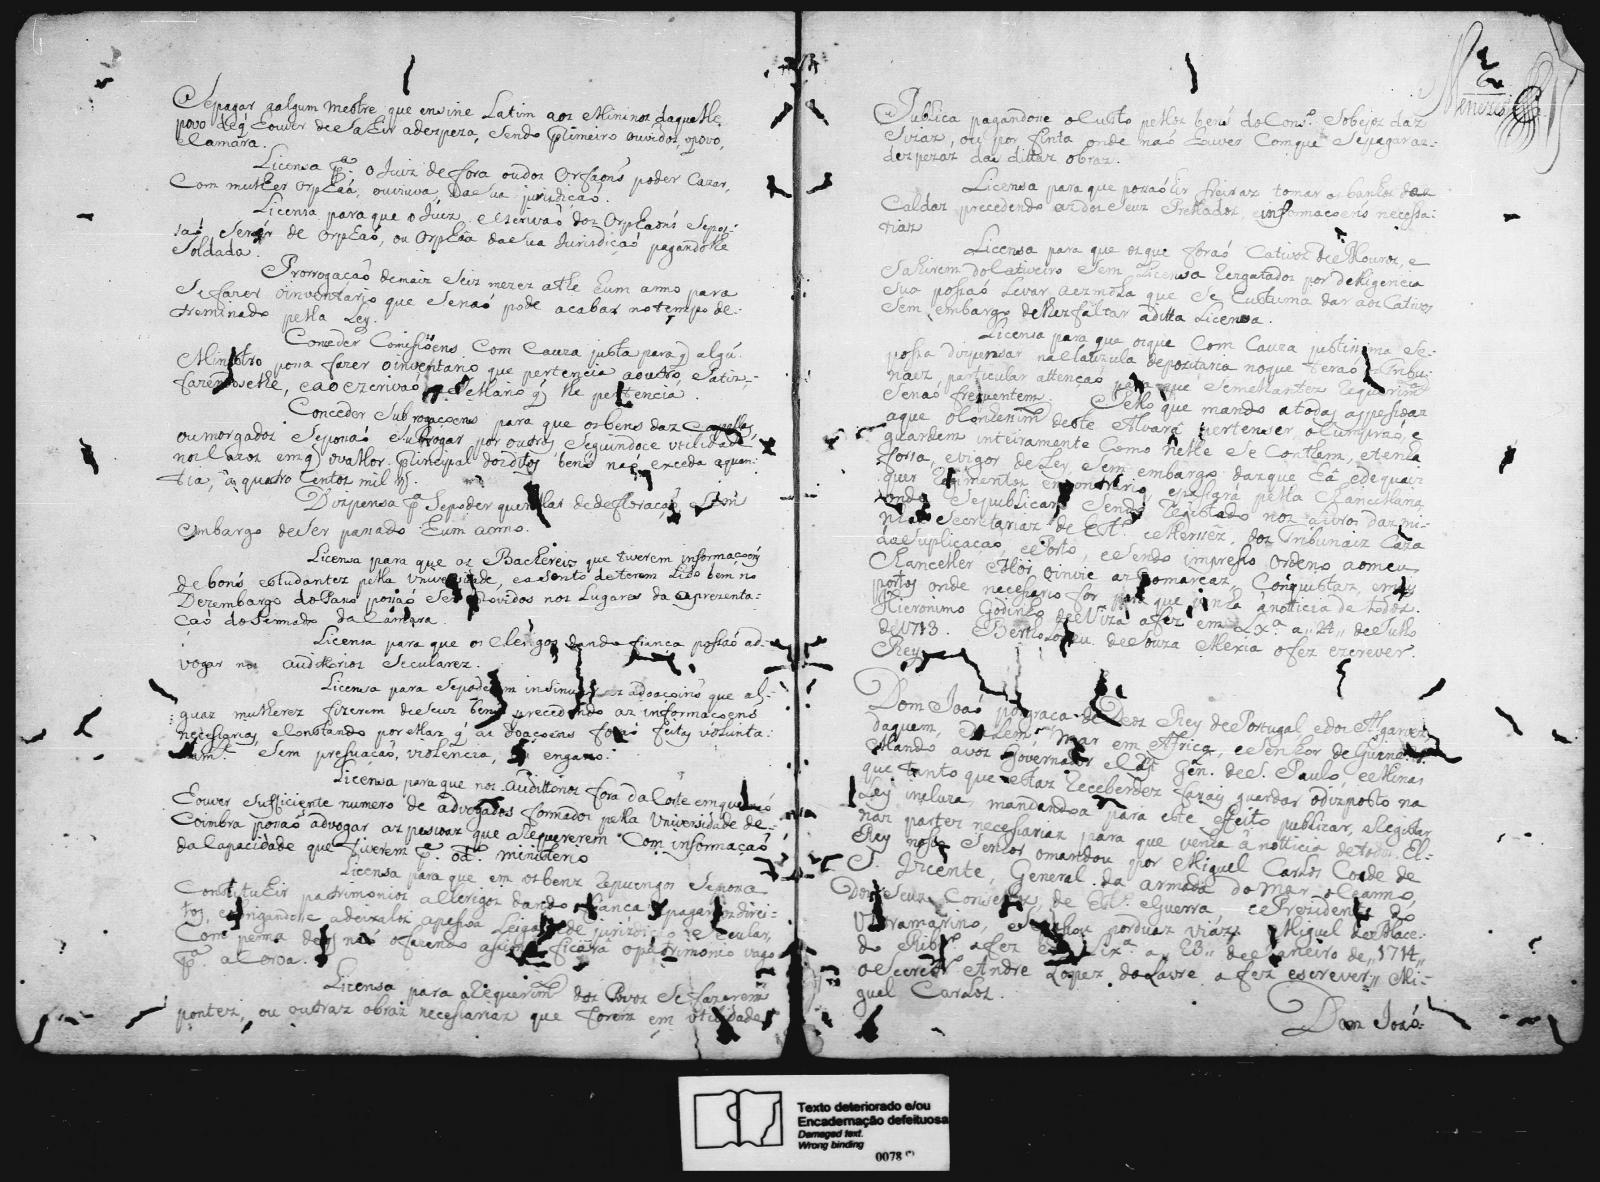 Sepagar aalgum mestre que ensine Latim aos Mininos daquelle
povo deq̃ Houver desahir adespeza, sendo primeiro ouvidos, opovo,
eCamara.
Licensa pª. o Juiz defora oudos Orfaons poder Cazar,
Com mulher orphaã, ouviuva, dasua jurisdição.
Licensa para que oJuiz, eescrivaõ dos Orphaons sepos-
saõ servir de orphaõ, ou orphaã dasua Jurisdição pagandolhe
Soldada.
Prorrogação demais seis mezes athe hum anno para
sefazer oinventario que senaõ pode acabar notempo de-
treminado pella Ley.
Conceder Comissõens Com Cauza justa para q̃ algũ
Ministro possa fazer oinventario que pertencia aoutro, satis-
fazendoselhe, eaoescrivaõ q̃ lhe pertencia.
Conceder subrogaçoens para que osbens das Capellas,
oumorgados sepossaõ subrogar por outros seguindoce utilidade
nos Cazos emq̃ ovallor principal doiditos bens naõ exceda aquan-
tia, de quatro Centos mil rs.
Dispensa pª sepoder querellar dedefloração sem
embargo deser passado hum anno.
Licensa para que os Bachareis que tiverem informaçoens
debons estudantes pella Universidade, eassento deterem Lido bem no
Dezembargo doPaso possaõ ser providos nos Lugares da aprezenta-
ção doSennado da Camara.
Licensa para que os Clerigos dando fiança possaõ ad-
vogar nos auditorios seculares.
Licensa para sepoderem insinuar as adoaçoins que al-
guaz mulheres fizerem deseus bens precedendo as informaçoens
necessarias, eConstando porellas q̃ as doaçoens foraõ feitas volunta-
riam.te sem persuação, violencia, ou engano.
Licensa para que nos Auditorios fora da Corte emque naõ
Houver sufficiente numero de advogados formados pella Universidade de
Coimbra possaõ advogar as pessoas que arequererem Com informação
daCapacidade que tiverem pª. odº. ministerio
Licensa para que em osbens Reguengos sepossa
Constituhir patrimonios aClerigos dando fiança apagar osdirei-
tos, eobrigandose adeixalos apessoa Leiga edejurisdição secular,
Com penna deq̃ naõ ofazendo assim ficará opatrimonio vago
pª. aCoroa.
Licensa para arequerim.to dos Povos sefazerem
pontes, ou outras obras necessarias que forem em utilidade
Publica pagandose oCusto pellos bens doCons.º sobejos das
Sizas, ou por finta onde naõ Houver Comque sepagar as
despezas das dittas obras.
Licensa para que possaõ hir freiras tomar os banhos das
Caldas precedendo asdos seus Prellados, einformaçoens necessa-
rias
Licensa para que osque foraõ Cativos deMouros, e
sahirem doCativeiro sem Licensa resgatados por deligencia
sua possaõ Levar aezmola que se Custuma dar aos Cativos
sem embargo delhesfaltar aditta Licensa.
Licensa para que osque Com Cauza justissima se
possa dispensar naClauzula depositaria noque teraõ osTribu-
naes particular attençaõ para que semelhantes Requerim.tos
senaõ frequentem. Pello que mando atodas aspessoas
aque oConhecim.to deste Alvará pertenser, oCumpraõ, e
guardem inteiramente Como nelle se Conthem, etenha
forsa, evigor deLey, sem embargo dasque Há, edequaes
quer Regimentos emcontrario, epassará pella Chancellaria
onde sepublicará, sendo Registado nos Livros dasmi-
nhas secretarias de Est.º eMerces, dos Tribunaes Caza
daSuplicaçaõ, eePorto, esendo impresso ordeno aomeu
Chanceller Mór oinvie as Comarcas, Conquistas, emais
partes onde necessario for para que venha ánotticia de todos.
Hieronimo Godinho deNiza afez em Lxª. a,,24,, deJulho
de1713. Bertholomeu deSouza Mexia ofez escrever.
Rey
Dom Joaõ porgraça de Deos Rey dePortugal edos Algarves
daquem, dalem Mar em Africa, eSenhor deGuine &.
Mando avos Governador eCap. Gen. deS. Paulo, eMinas
que tanto que estas receberdes fasais guardar odisposto na
Ley inclusa, mandandoa para este effeito publicar, eregistar
nas partes necessarias para que venha á notticia detodos. El-
Rey nosso Senhor omandou por Miguel Carlos Conde de
S. Vicente, General da armada doMar oCeanno,
Dos seus Conselhos, de Est.º eGuerra ePrezidente do
Ultramarino, eSepassou porduas vias. Miguel deMace-
do Ribr.º afez em Lxª. a,,23,, deJaneiro de,,1714,,
oSecretr.º Andre Lopes daLavre afez escrever,, Mi-
guel Carlos.
Dom Jozé
Menezes
Texto deteriorado e/ou
Encadernação defeituosa
Damaged text.
Wrong binding
0078 (*)